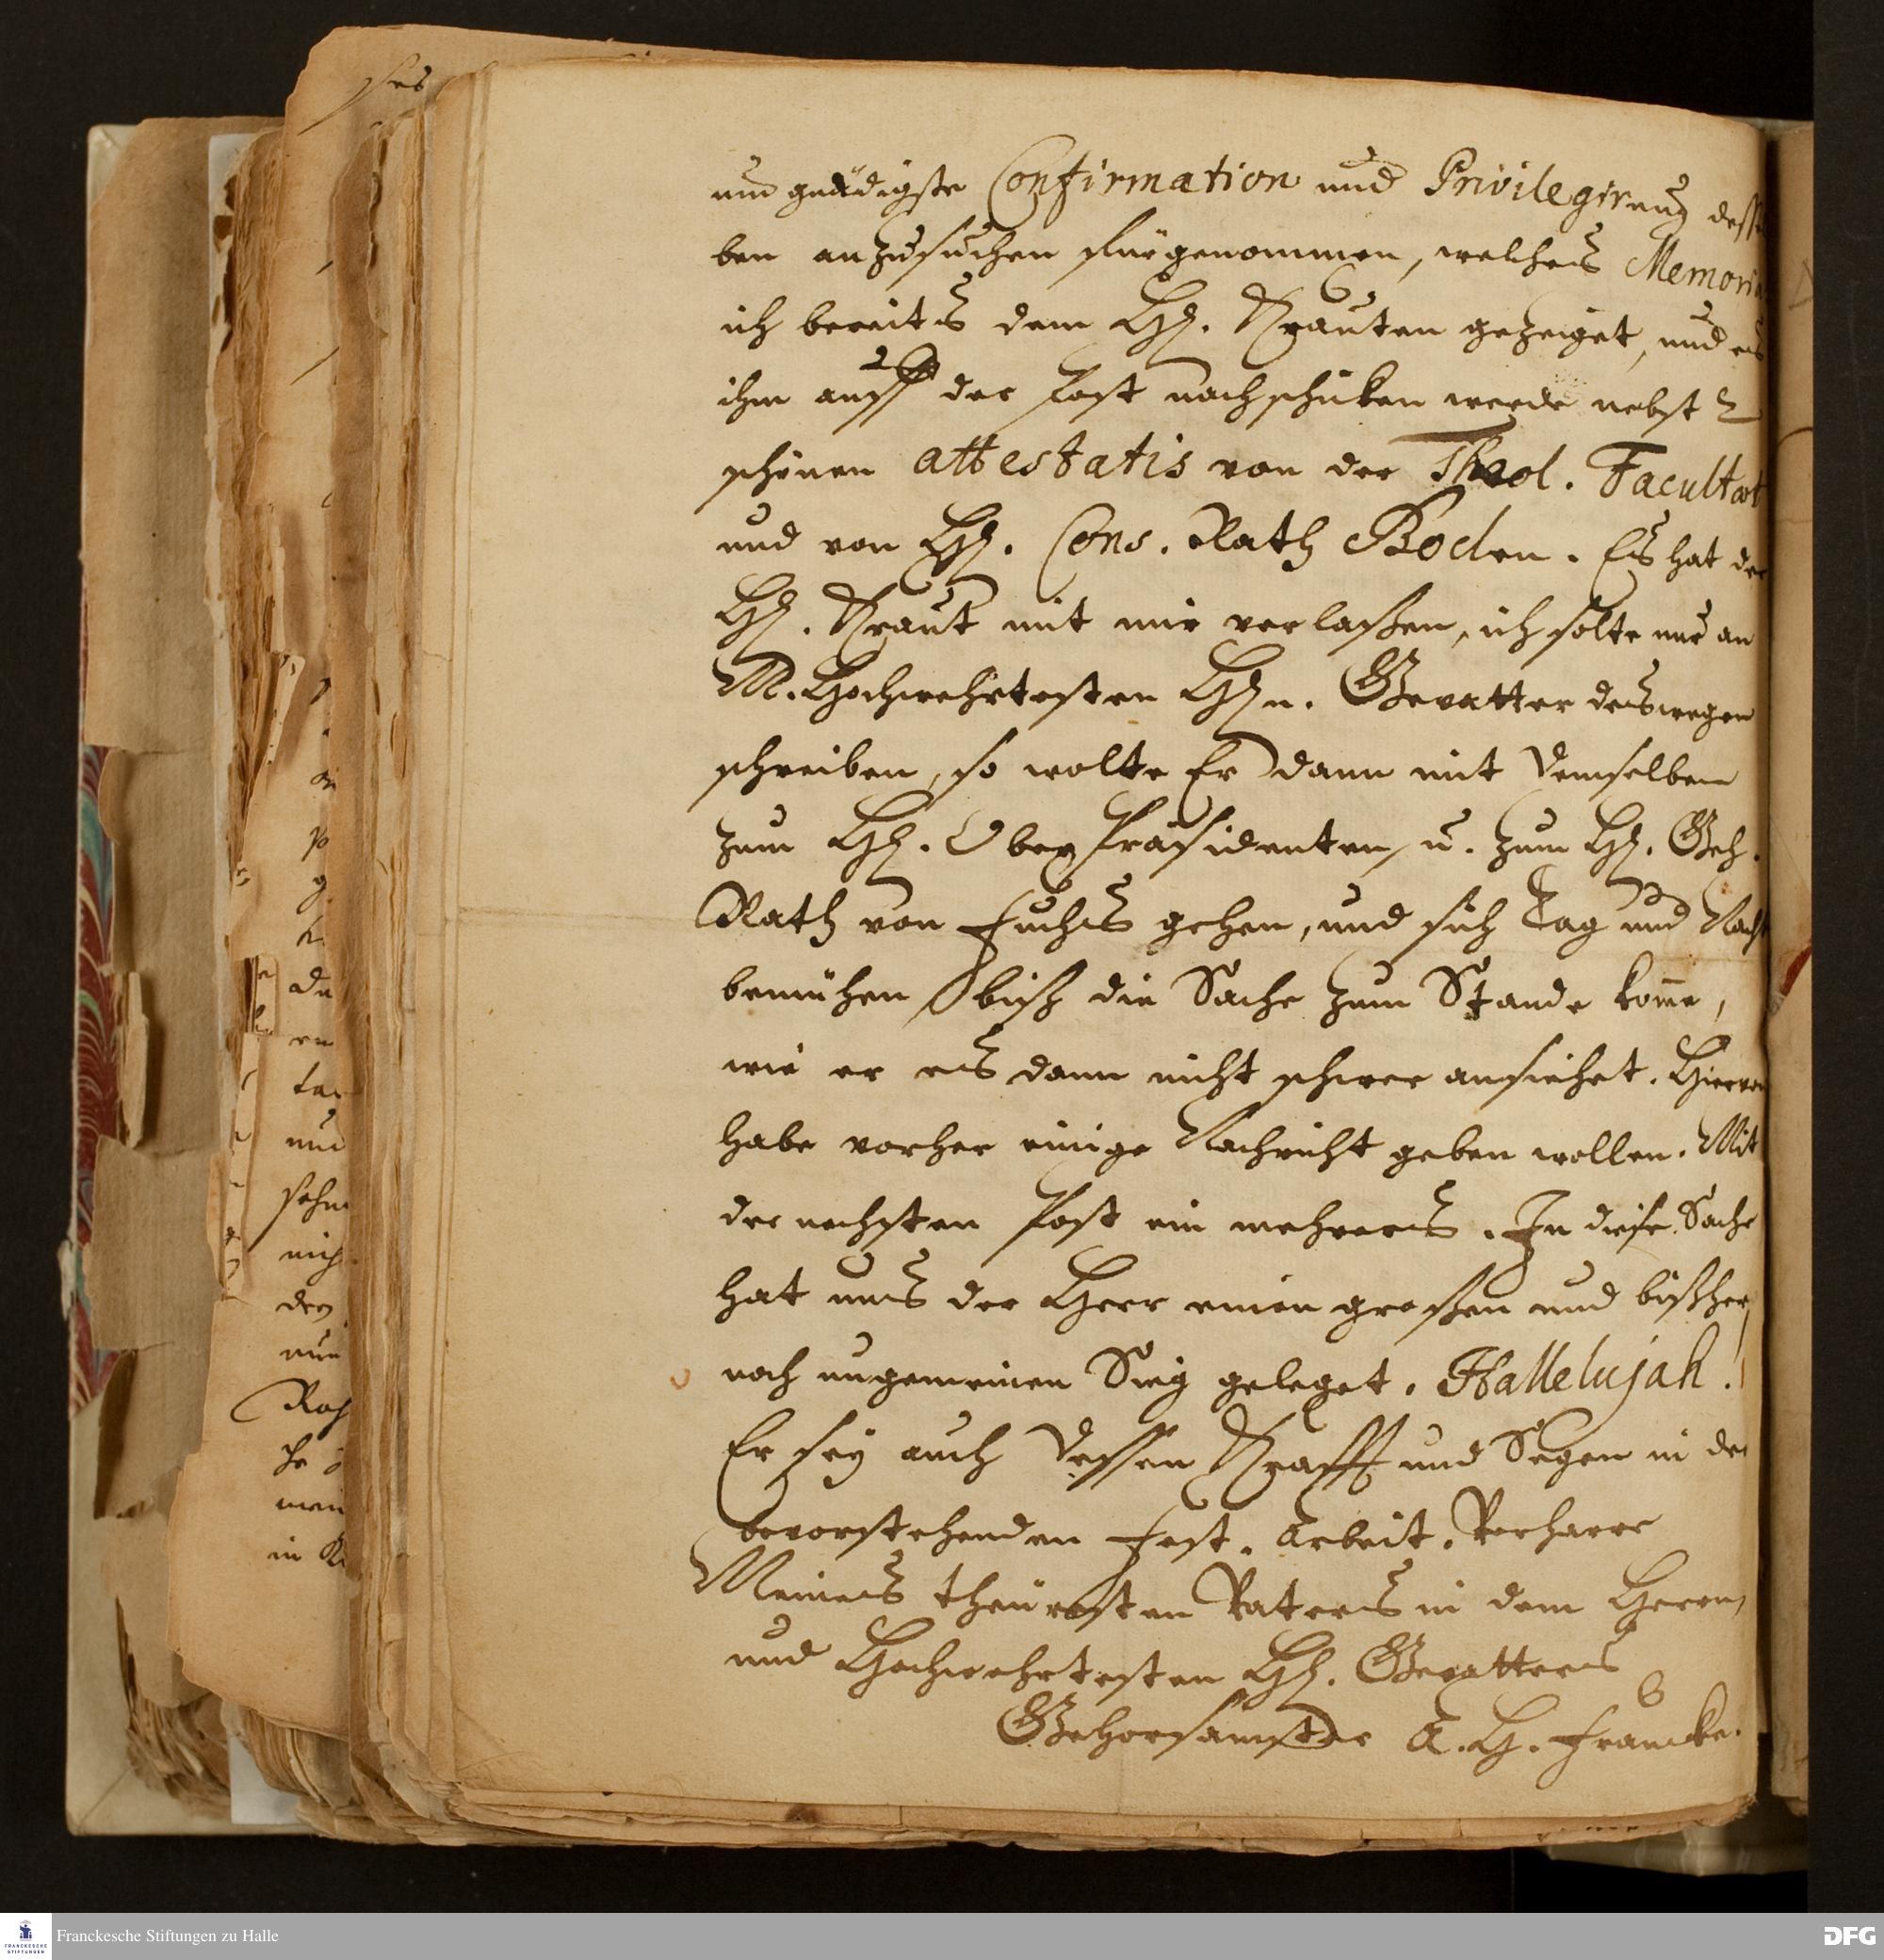 um gnädigste Confirmation und Privilegirung dessel
ben anzusuchen fürgenommen, welches Memorial
ich bereits dem Hn. Krauten gezeiget, und es
ihm auff der Post nachschicken werde nebst 2
schönen attestatis von der Theol. Facultaet
und von Hn. Cons. Rath Boden. Es hat der
Hn. Kraut mit mir verlaßen, ich solte nur an
M. Hochwehrtesten Hhn. Gevatter deswegen
schreiben, so wolte Er dann mit demselben
zum Hn. Ober Präsidenten, u. zum Hn. Geh.
Rath von Fuchs gehen, und sich Tag und Nacht
bemühen, biß die Sache zum Stande kom̄e,
wie er es dann nicht schwer ansiehet. Hiervon
habe vorher einige Nachricht geben wollen. Mit
der nechsten Post ein mehrers. In diese Sache
hat uns der Herr einen großen und bißher
noch ungemeinen Sieg geleget. Hallelujah!
Er sey auch dessen Krafft und Segen in der
bevorstehenden Fest-Arbeit. Verharre
Meines theuresten Vaters in dem Herrn,
und Hochwehrtesten Hn. Gevatters
Gehorsamster A. H. Francke.
Franckesche Stiftungen zu Halle
FRANCKESCHE
STIFTUNGEN
DFG